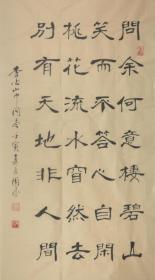 問余何意棲碧山
笑而不答心自閑
桃花流水窅然去
別有天地非人間
李白山中問答